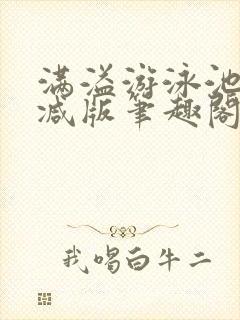 满溢游泳池
减版筆趣閣
我喝白牛二